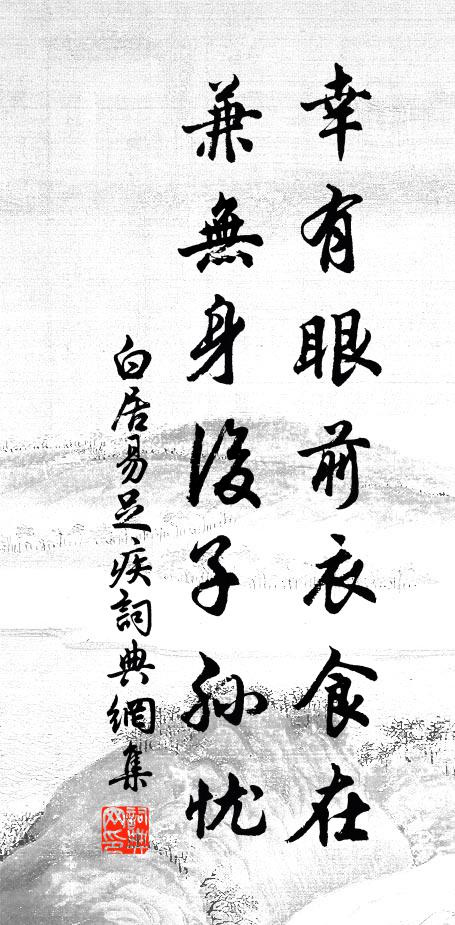 幸有眼前衣食在
兼無身後子孫忧
白居易足疾詞典網集
詞典网印